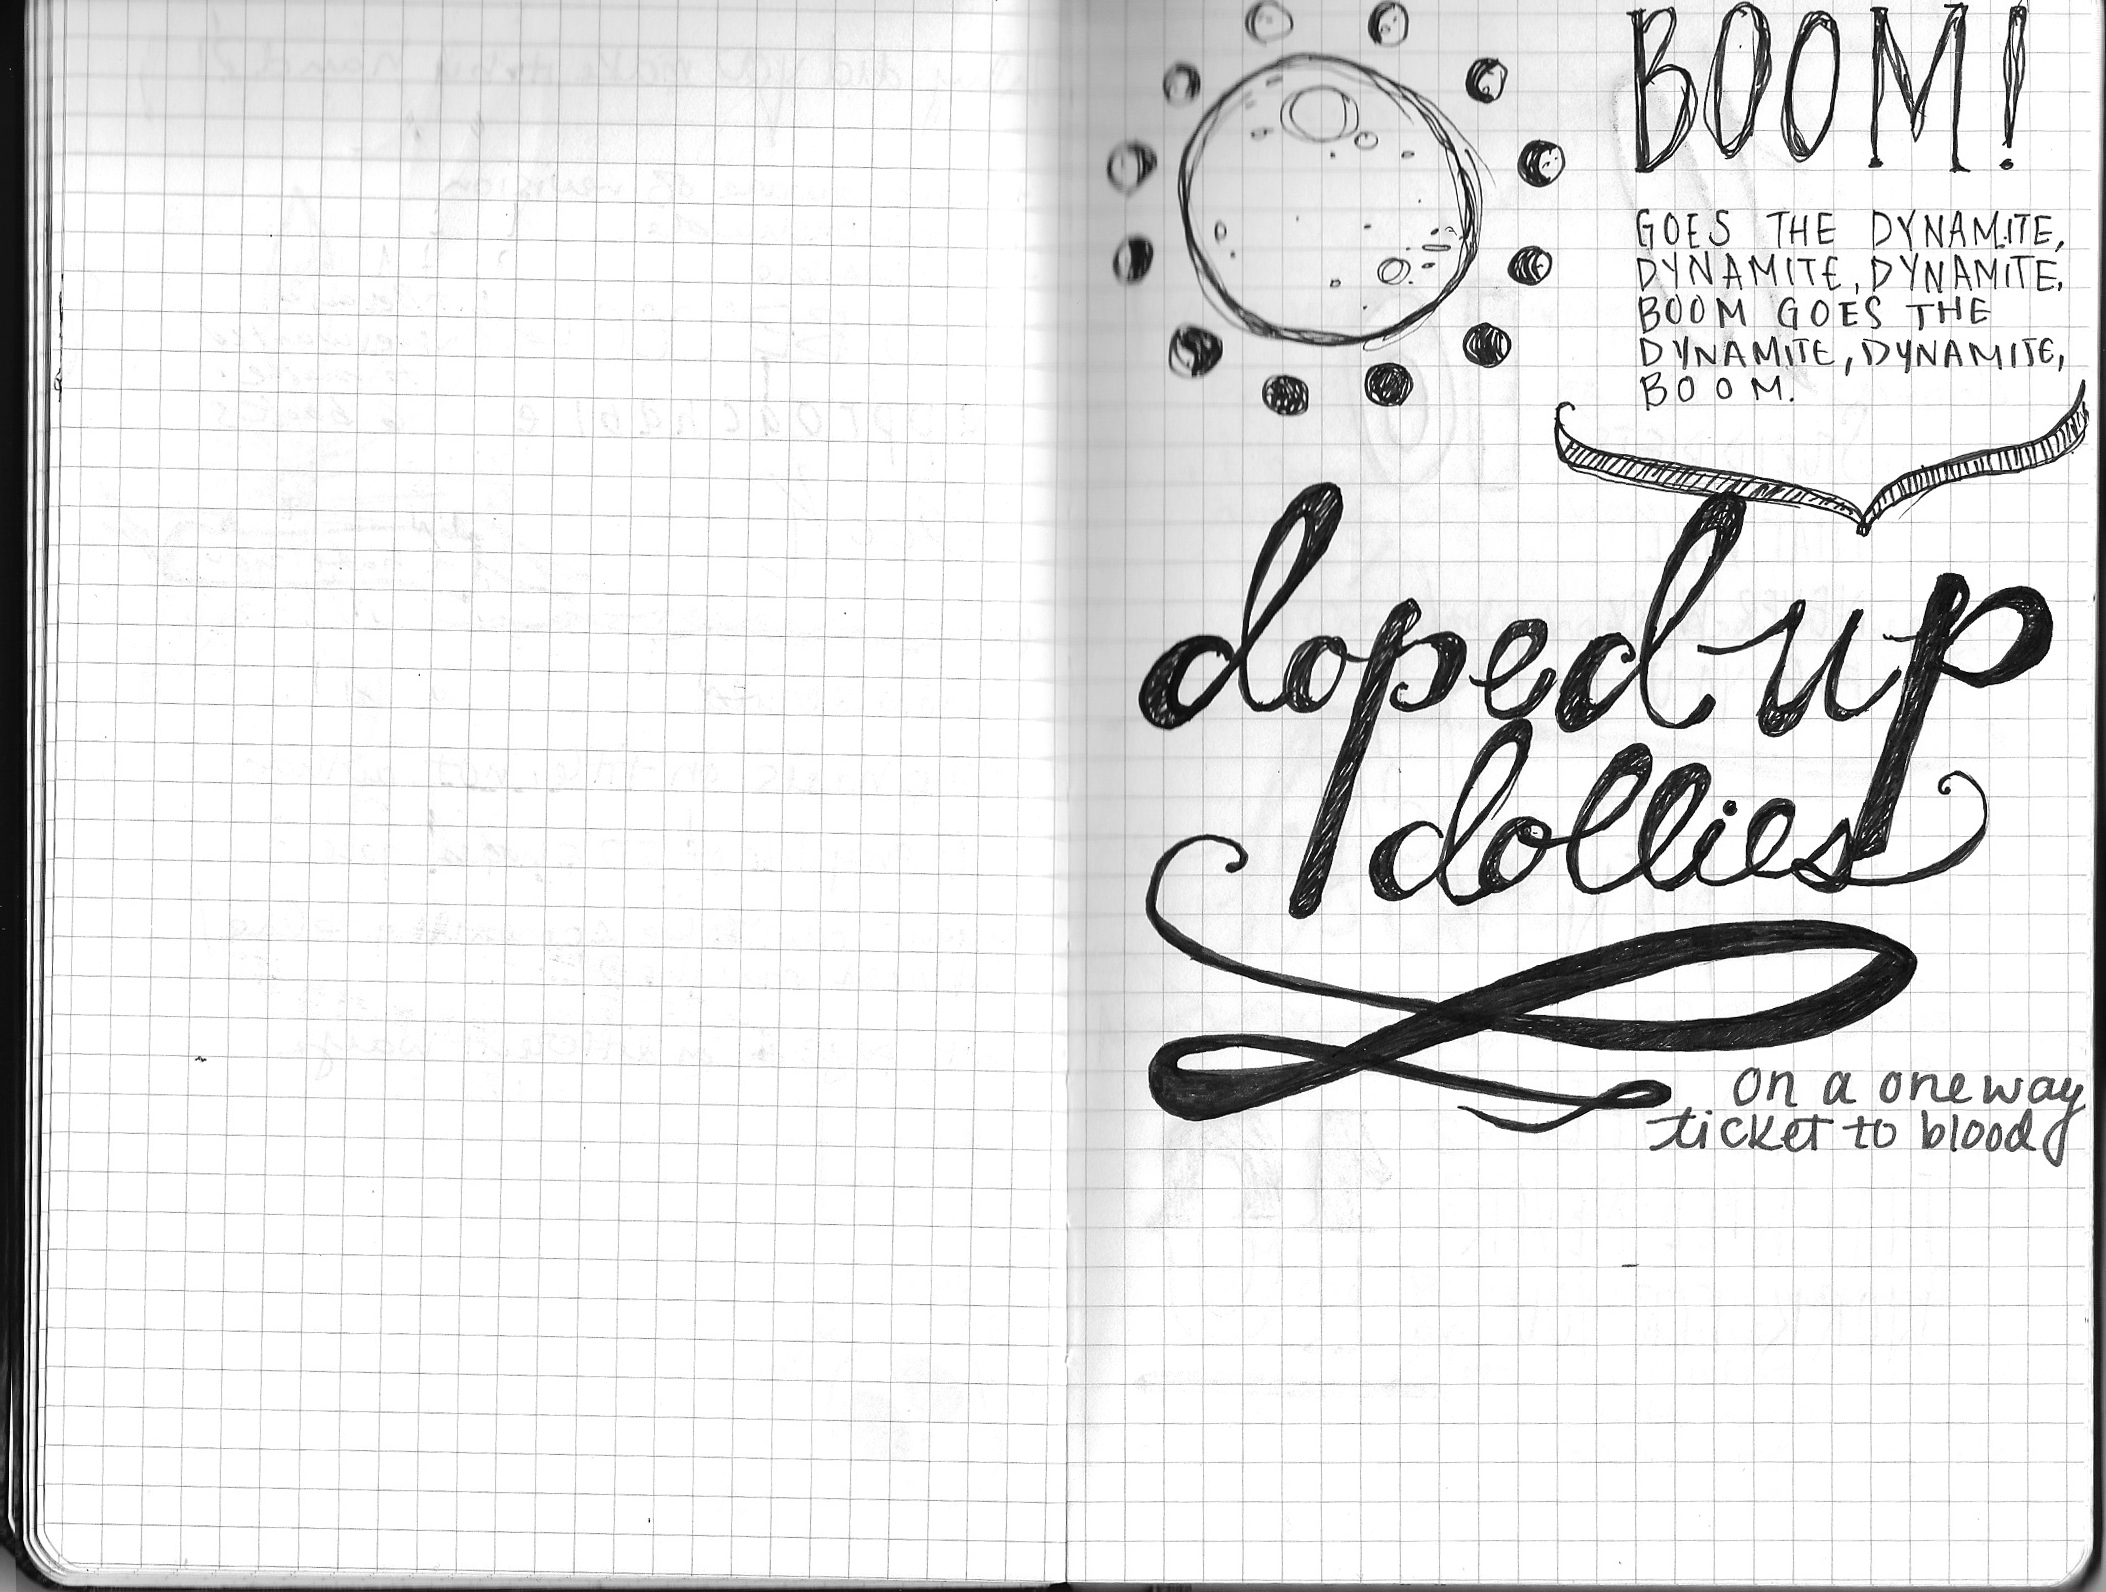 BOOM!
GOES THE DYNAMITE,
DYNAMITE, DYNAMITE,
BOOM GOES THE
DYNAMITE, DYNAMITE,
BOOM.
doped up
dollies
on a one way
ticket to blood